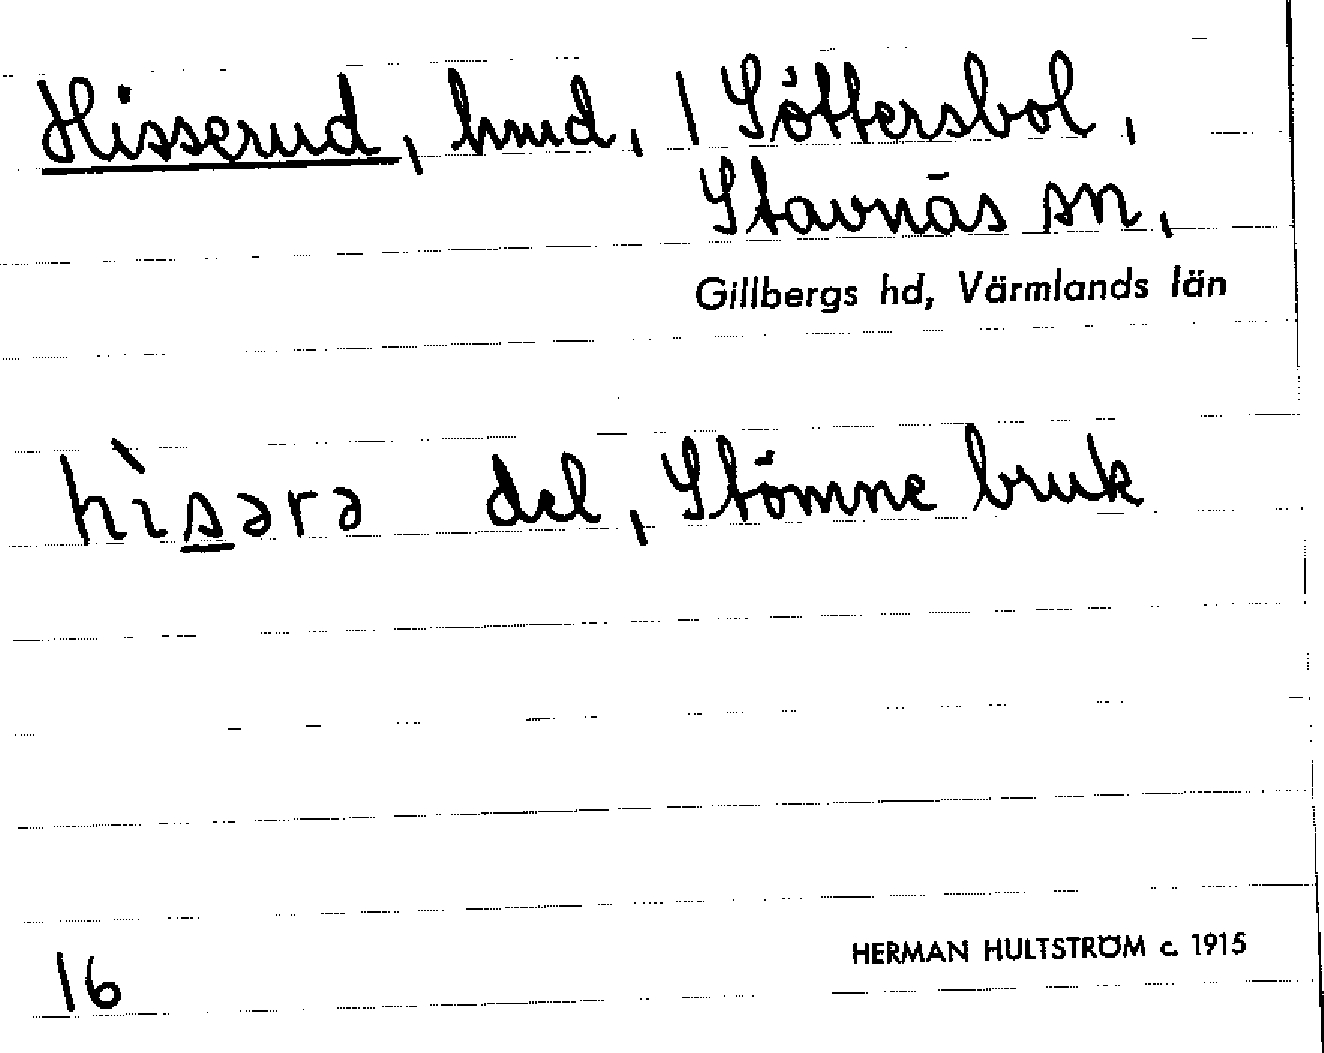 Hisserud, hmd, 1 Söttersbol,
Stavnäs sn,
Gillbergs hd, Värmlands län
hìsərə del, Stömne bruk
16
HERMAN HULTSTRÖM c. 1915